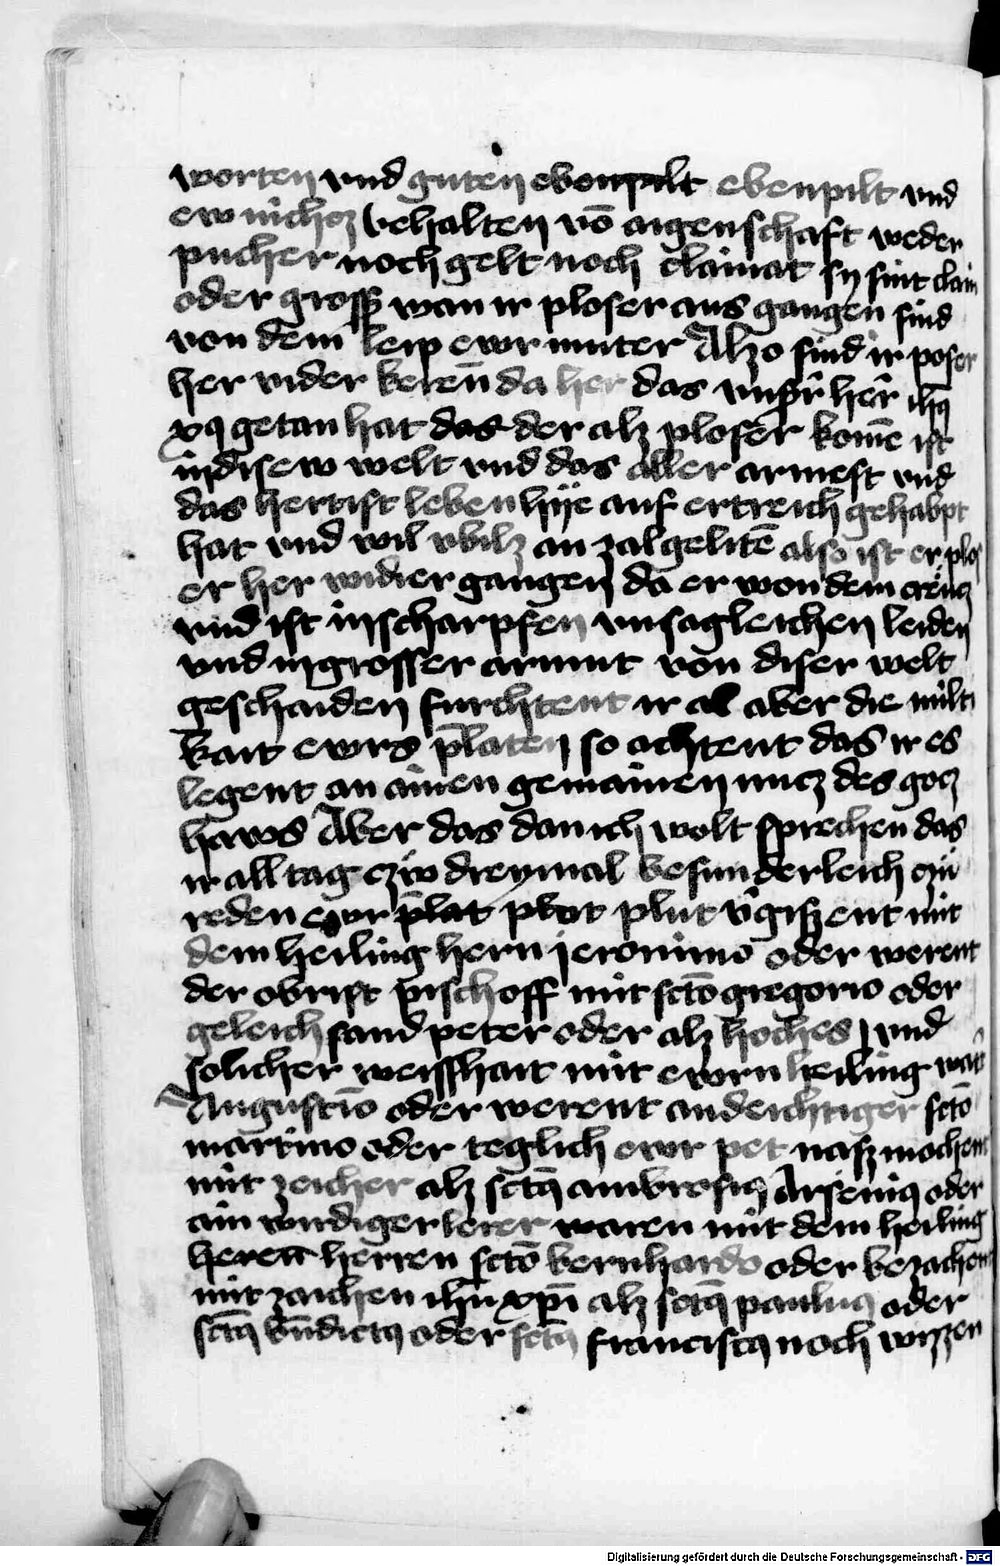 worten vnd guten ebenpilt ebenpilt vnd
ew nichcz behalten vō aigenschaft weder
pucher noch gelt noch clainat sy sint clain
oder gross wan ir ploser aus gangen sind
von dem leip ewr muter Alzo sind ir poser
her wider keren da her das vnsr̄ her̄ ihꝯ
xꝯ getan hat das der alz ploser komē ist
in disew welt vnd das aller armest vnd
das hertist leben hye auf ertreich gehabpt
hat vnd wil vbilz an zal gelitē also ist er plos
er her widier gangen da er won dem creucz
vnd ist in scharpfen vnsagleichen leiden
vnd in grosser armut von diser welt
geschaiden furchtent ir al aber die milti
kait ewrs p̄laten so achtent das ir es
legent an ainen gemainen nucz des gocz
haws Aber das dan ich wolt sprechen das
ir all tag czw dreymal besunderleich czu
reden ewr p̄lat plut v̄gissent mit
dem heiling hern jeronimo oder werent
der obrist pischoff mit sctō gregorio oder
geleich sand peter oder alz hoches vnd
solicher weisshait mit ewrn heiling
Augustīo oder werent andeichtiger sctō
martino oder teglich ewr pet nasz mochent
mit zeicher alz sctꝯ ambrosiꝯ Arseniꝯ oder
ain wirdiger lerer waren mit dem heiling
heren herren sctō bernhardo oder bezachent
mit zaichen ihū xpī alz sctꝯ pauluꝯ oder
sctꝯ bn̄dictꝯ oder sctꝯ franciscꝯ noch wizzen
Digitalisierung gefördert durch die Deutsche Forschungsgemeinschaft - DFG